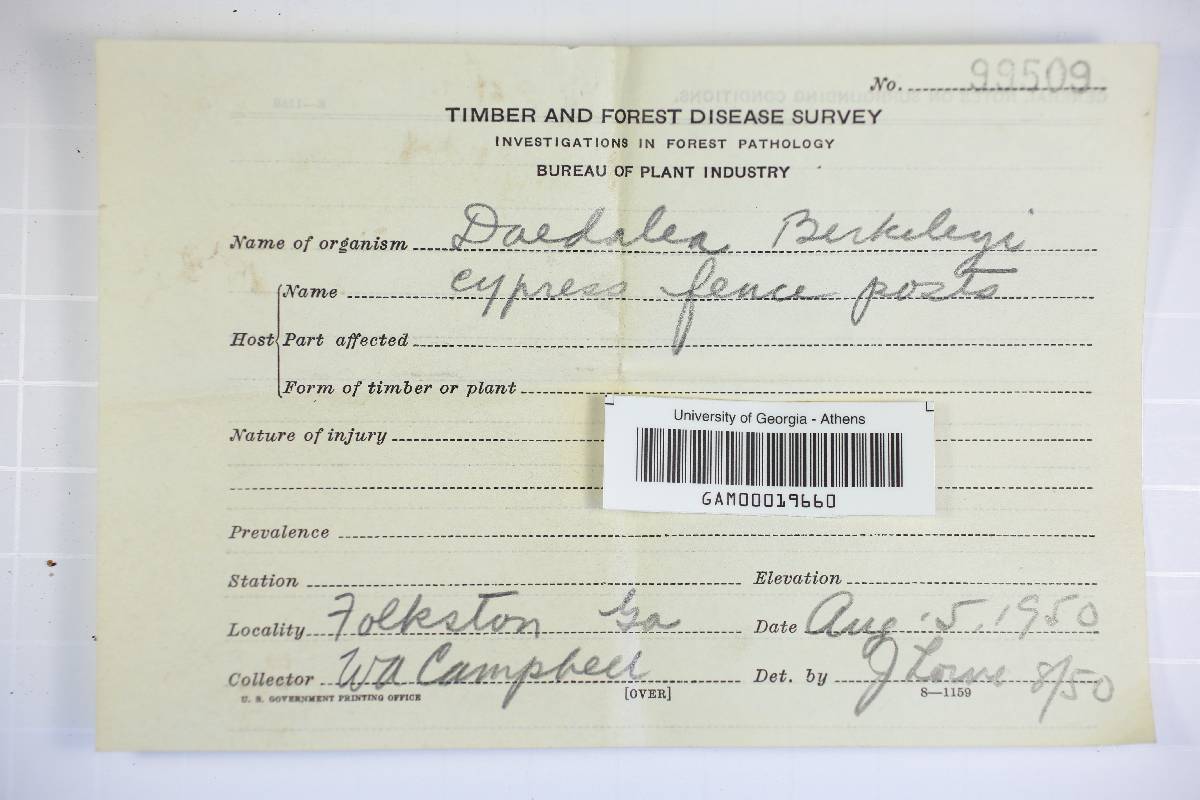 No. 99509
TIMBER AND FOREST DISEASE SURVEY
INVESTIGATIONS IN FOREST PATHOLOGY
BUREAU OF PLANT INDUSTRY
Name of organism Daedalea Berkeleyi
Host Name cypress fence posts
Part affected
Form of timber or plant
Nature of injury
University of Georgia - Athens
GAM00019660
Prevalence
Station Elevation
Locality Folkston Ga Date Aug. 5, 1950
Collector WA Campbell Det. by J Lowe 8/50
U. S. GOVERNMENT PRINTING OFFICE [OVER] 8—1159